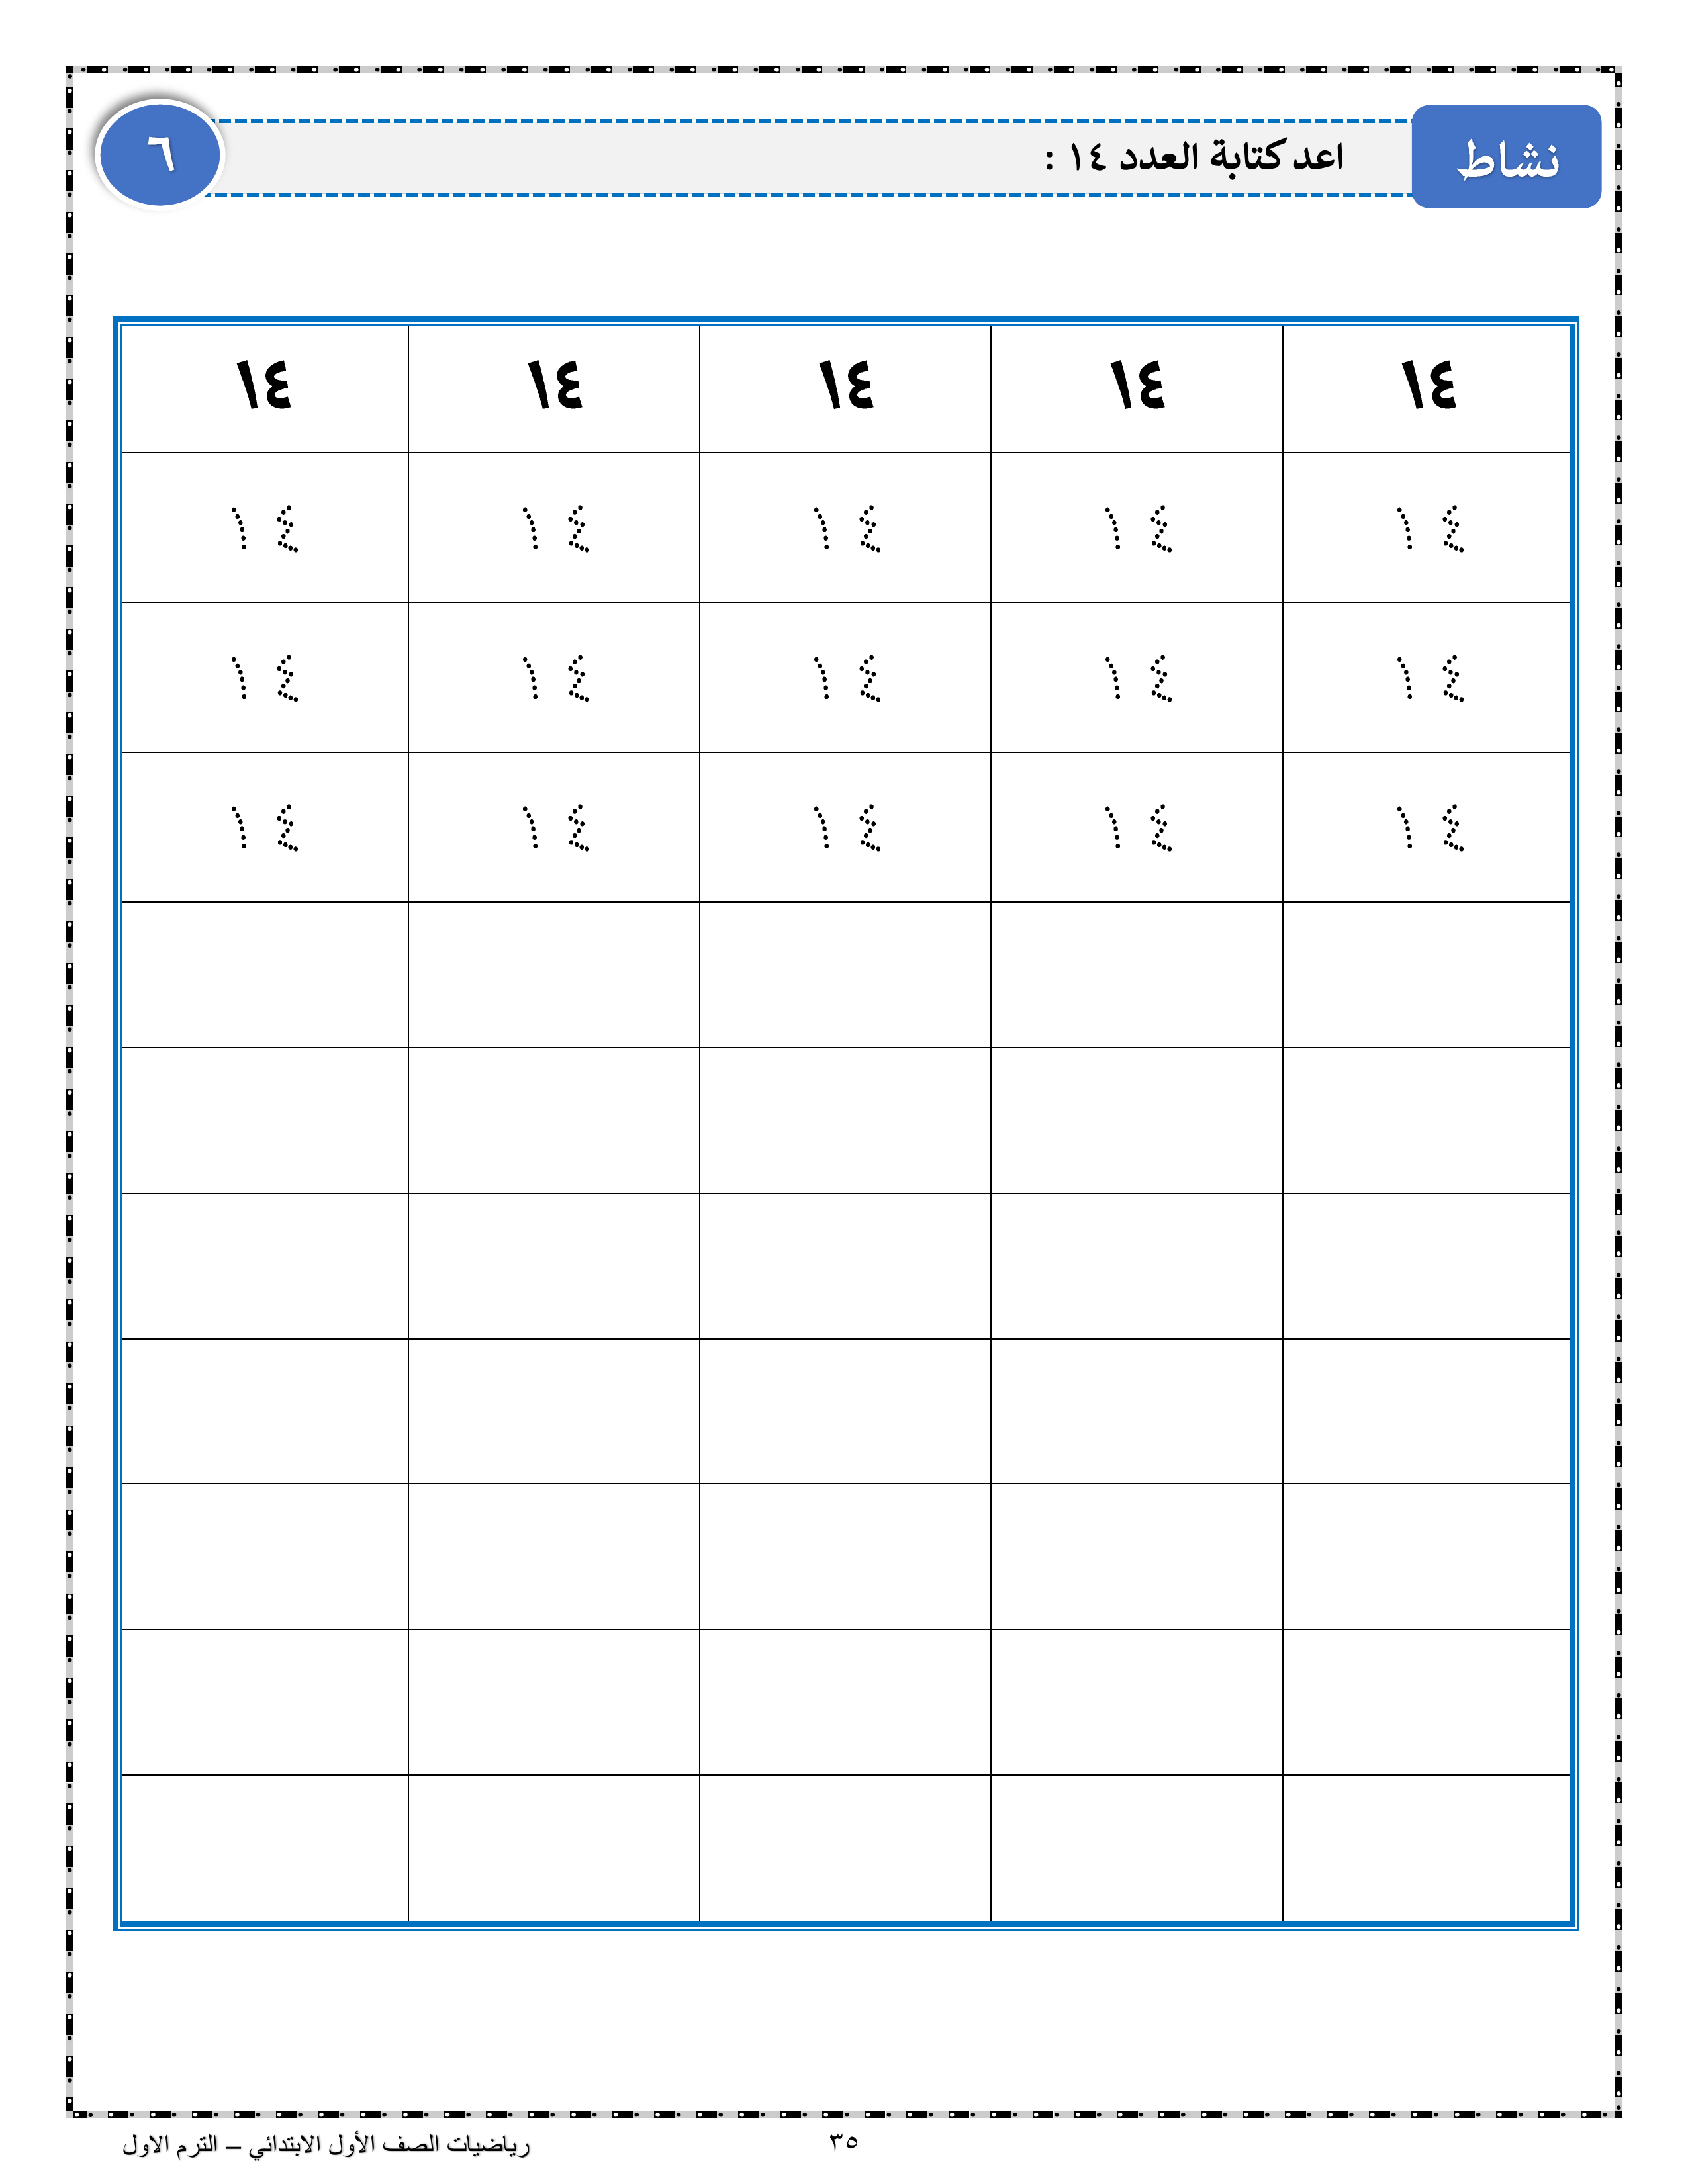 نشاط
اعد كتابة العدد ١٤ :
٦
١٤ ١٤ ١٤ ١٤ ١٤
١٤ ١٤ ١٤ ١٤ ١٤
١٤ ١٤ ١٤ ١٤ ١٤
١٤ ١٤ ١٤ ١٤ ١٤
٣٥
رياضيات الصف الأول الابتدائي – الترم الاول